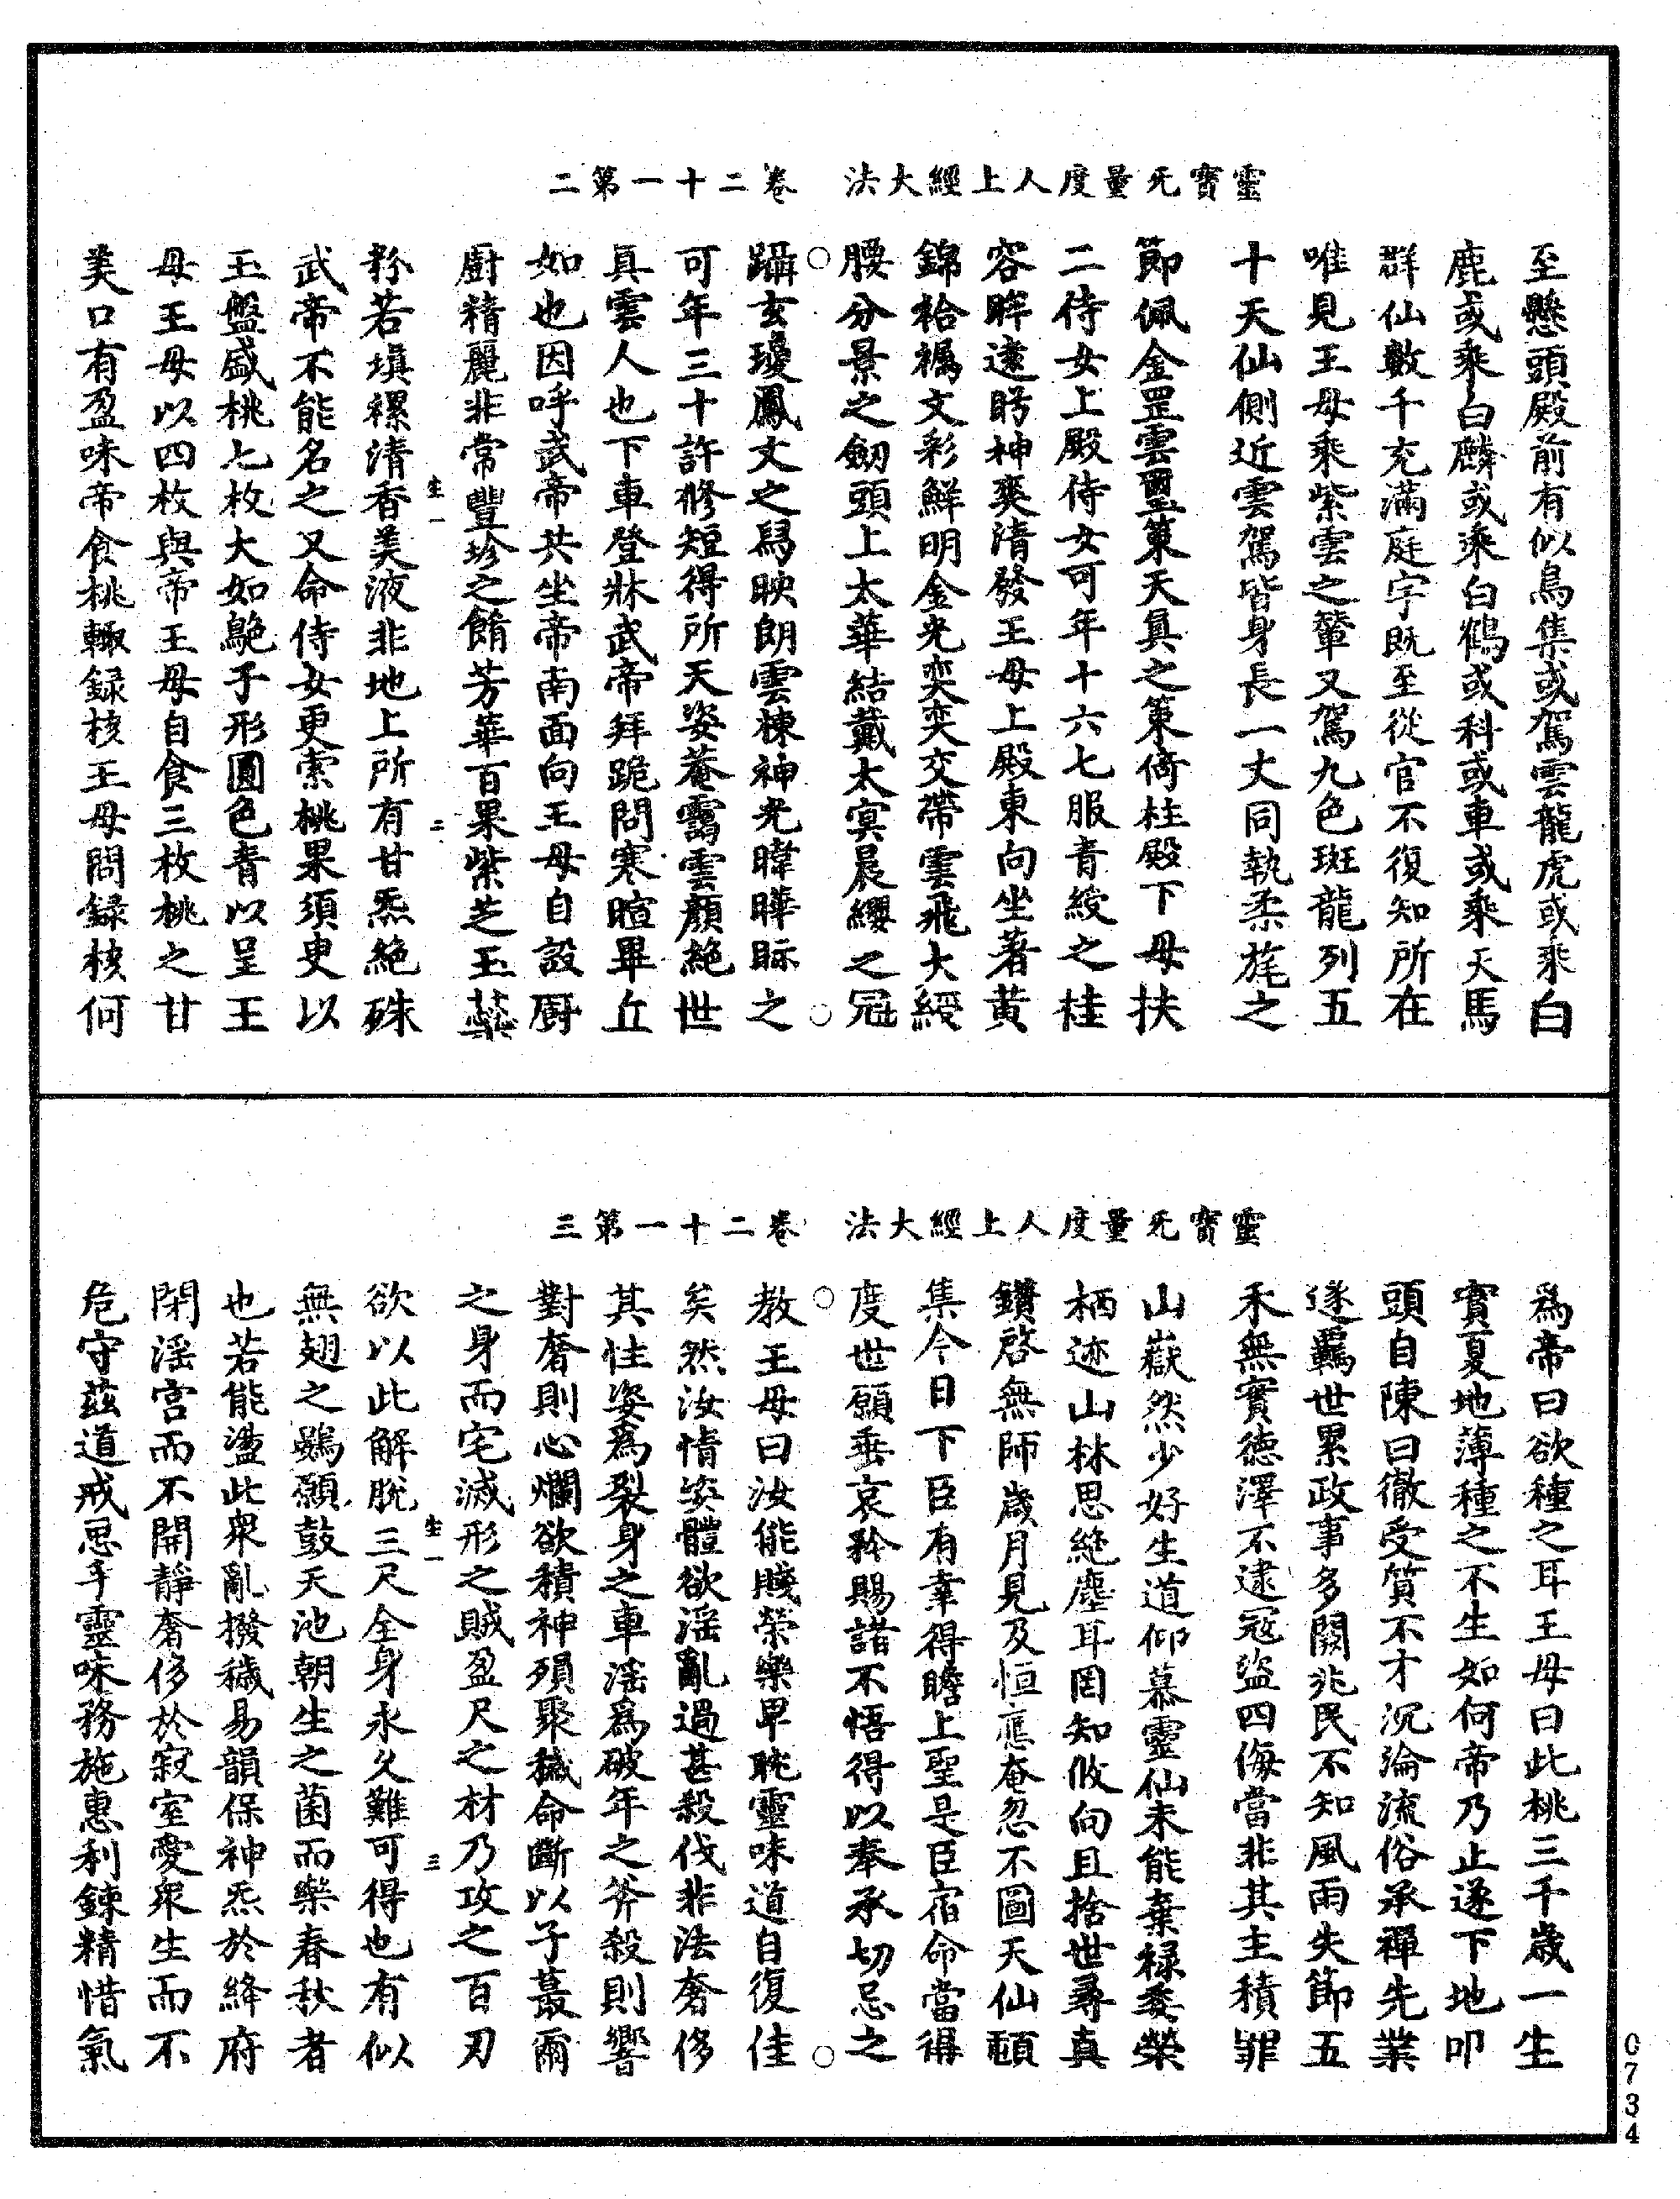 靈寶无量度人上經大法　卷二十一第二
至懸頭殿前有似鳥集或駕雲龍虎或乘白
鹿或乘白麟或乘白鶴或科或車或乘天馬
群仙數千充滿庭宇既至從官不復知所在
唯見王母乘紫雲之輦又駕九色斑龍列五
十天仙側近雲駕皆身長一丈同執柔旄之
節佩金罡雲璽策天真之策倚柱殿下母扶
二侍女上殿侍女可年十六七服青綾之桂
容眸遠眄神爽清發王母上殿東向坐著黃
錦袷襡文彩鮮明金光奕奕交帶雲飛大綬
腰分景之劒頭上太華結戴太冥晨纓之冠
躡玄瓊鳳文之舄映朗雲棟神光暐曄眎之
可年三十許修短得所天姿菴靄雲顏絕世
真雲人也下車登牀武帝拜跪問寒暄畢立
如也因呼武帝共坐帝南面向王母自設厨
厨精麗非常豐珍之餚芳華百果紫芝玉蘂
生一　二
粉若塡樏清香美液非地上所有甘炁絕殊
武帝不能名之又命侍女更索桃果須臾以
玉盤盛桃七枚大如鷈子形圓色青以呈王
母王母以四枚與帝王母自食三枚桃之甘
美口有盈味帝食桃輙録核王母問録核何
靈寶无量度人上經大法　卷二十一第三
爲帝曰欲種之耳王母曰此桃三千歲一生
實夏地薄種之不生如何帝乃止遂下地叩
頭自陳曰徹受質不才沉淪流俗承禪先業
遂羈世累政事多闕兆民不知風雨失節五
禾無實德澤不逮寇盜四侮當非其主積罪
山嶽然少好生道仰慕靈仙未能棄祿委榮
栖迹山林思絕塵耳罔知攸向且捨世尋真
鑽啓無師歲月見及恒應奄忽不圖天仙頓
集今日下臣有幸得瞻上聖是臣宿命當得
度世願垂哀矜賜諸不悟得以奉承切忌之
教王母曰汝能賤榮樂卑眈靈味道自復佳
矣然汝情姿體欲淫亂過甚殺伐非法奢侈
其性姿爲裂身之車淫爲破年之斧殺則響
對奢則心爛欲積神殞聚穢命斷以子蕞爾
之身而宅滅形之賊盈尺之材乃攻之百刃
生一　三
欲以此解脫三尺全身永久難可得也有似
無翅之鷃願鼓天池朝生之菌而樂春秋者
也若能盪此衆亂撥穢易韻保神炁於絳府
閉淫宮而不開靜奢侈於寂室愛衆生而不
危守茲道戒忌乎靈味務施惠利鍊精惜氣
0734